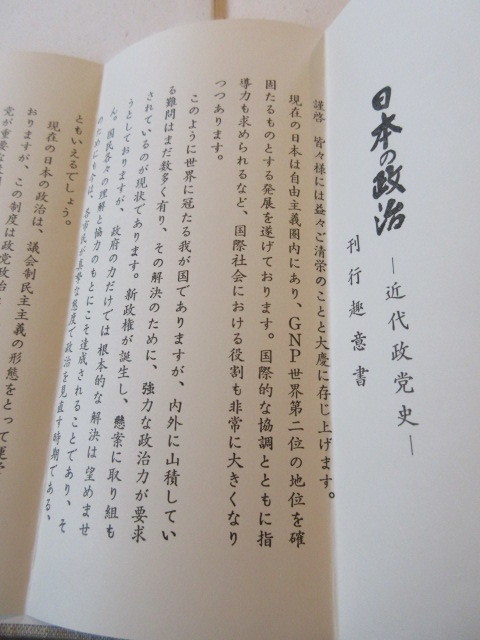 日本の政治
―近代政党史―
刊行趣意書
謹啓 皆々様には益々ご清栄のことと大慶に存じ上げます。
現在の日本は自由主義圏内にあり、GNP世界第二位の地位を確
固たるものとする発展を遂げております。国際的な協調とともに指
導力も求められるなど、国際社会における役割も非常に大きくなり
つつあります。
このように世界に冠たる我が国でありますが、内外に山積してい
る難問はまだ数多く有り、その解決のために、強力な政治力が要求
されているのが現状であります。新政権が誕生し、懸案に取り組も
うとしておりますが、政府の力だけでは根本的な解決は望めませ
ん。国民各々の理解と協力のもとにこそ達成されることであり、そ
のためにも今は、各市民が真摯な態度で政治を見直す時期である、
ともいえるでしょう。
現在の日本の政治は、議会制民主主義の形態をとって運
おりますが、この制度は政党政治
党が重要な